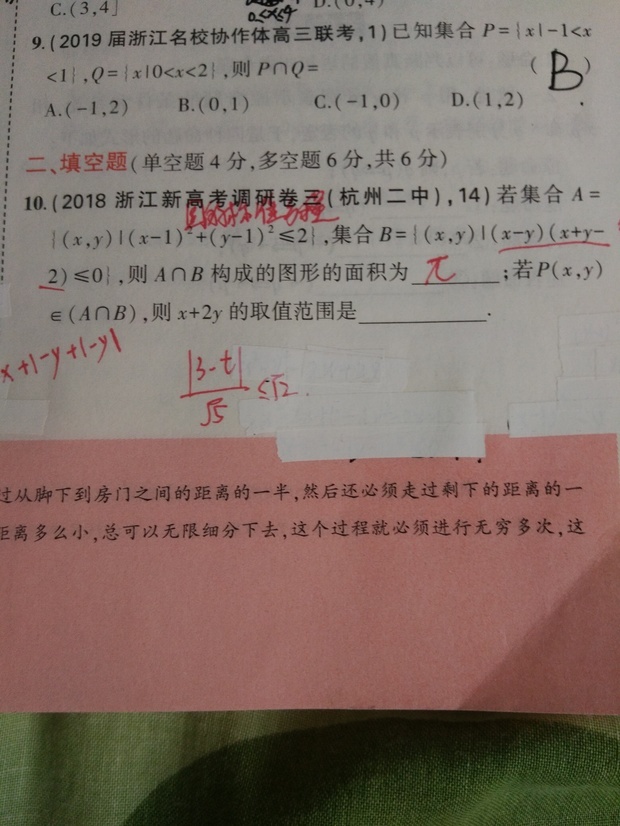 C.(3,4]
D.(0,4)
0≤x≤4
9.(2019届浙江名校协作体高三联考,1)已知集合P={x|-1<x
<1},Q={x|0<x<2},则P∩Q= (B)
A.(-1,2) B.(0,1) C.(-1,0) D.(1,2)
二、填空题(单空题4分,多空题6分,共6分)
10.(2018浙江新高考调研卷三(杭州二中),14)若集合A=
{(x,y)|(x-1)²+(y-1)²≤2},集合B={(x,y)|(x-y)(x+y-
2)≤0},则A∩B构成的图形的面积为π;若P(x,y)
∈(A∩B),则x+2y的取值范围是________.
x+|-y+|-y|
|3-t|/√5≤√2.
过从脚下到房门之间的距离的一半,然后还必须走过剩下的距离的一
距离多么小,总可以无限细分下去,这个过程就必须进行无穷多次,这